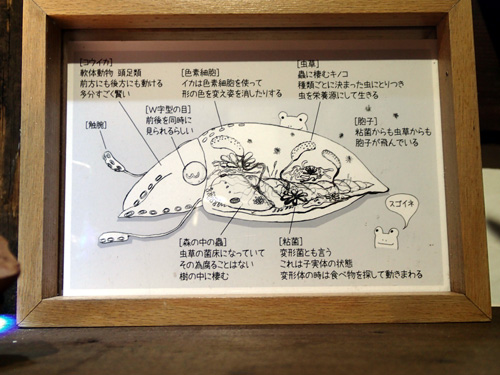 [コウイカ]
軟体動物 頭足類
前方にも後方にも動ける
多分すごく賢い
[色素細胞]
イカは色素細胞を使って
形の色を変え姿を消したりする
[虫草]
蟲に棲むキノコ
種類ごとに決まった虫にとりつき
虫を栄養源にして生きる
[W字型の目]
前後を同時に
見られるらしい
[触腕]
[胞子]
粘菌からも虫草からも
胞子が飛んでいる
スゴイネ
[森の中の蟲]
虫草の菌床になっていて
その為腐ることはない
樹の中に棲む
[粘菌]
変形菌とも言う
これは子実体の状態
変形体の時は食べ物を探して動きまわる